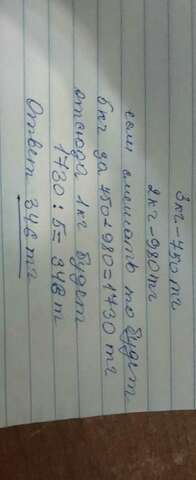 3кг-750тг
2кг-980тг
если смешать то будет
5кг за 750+980=1730 тг
отсюда 1кг будет
1730:5=346т
Ответ 346тг